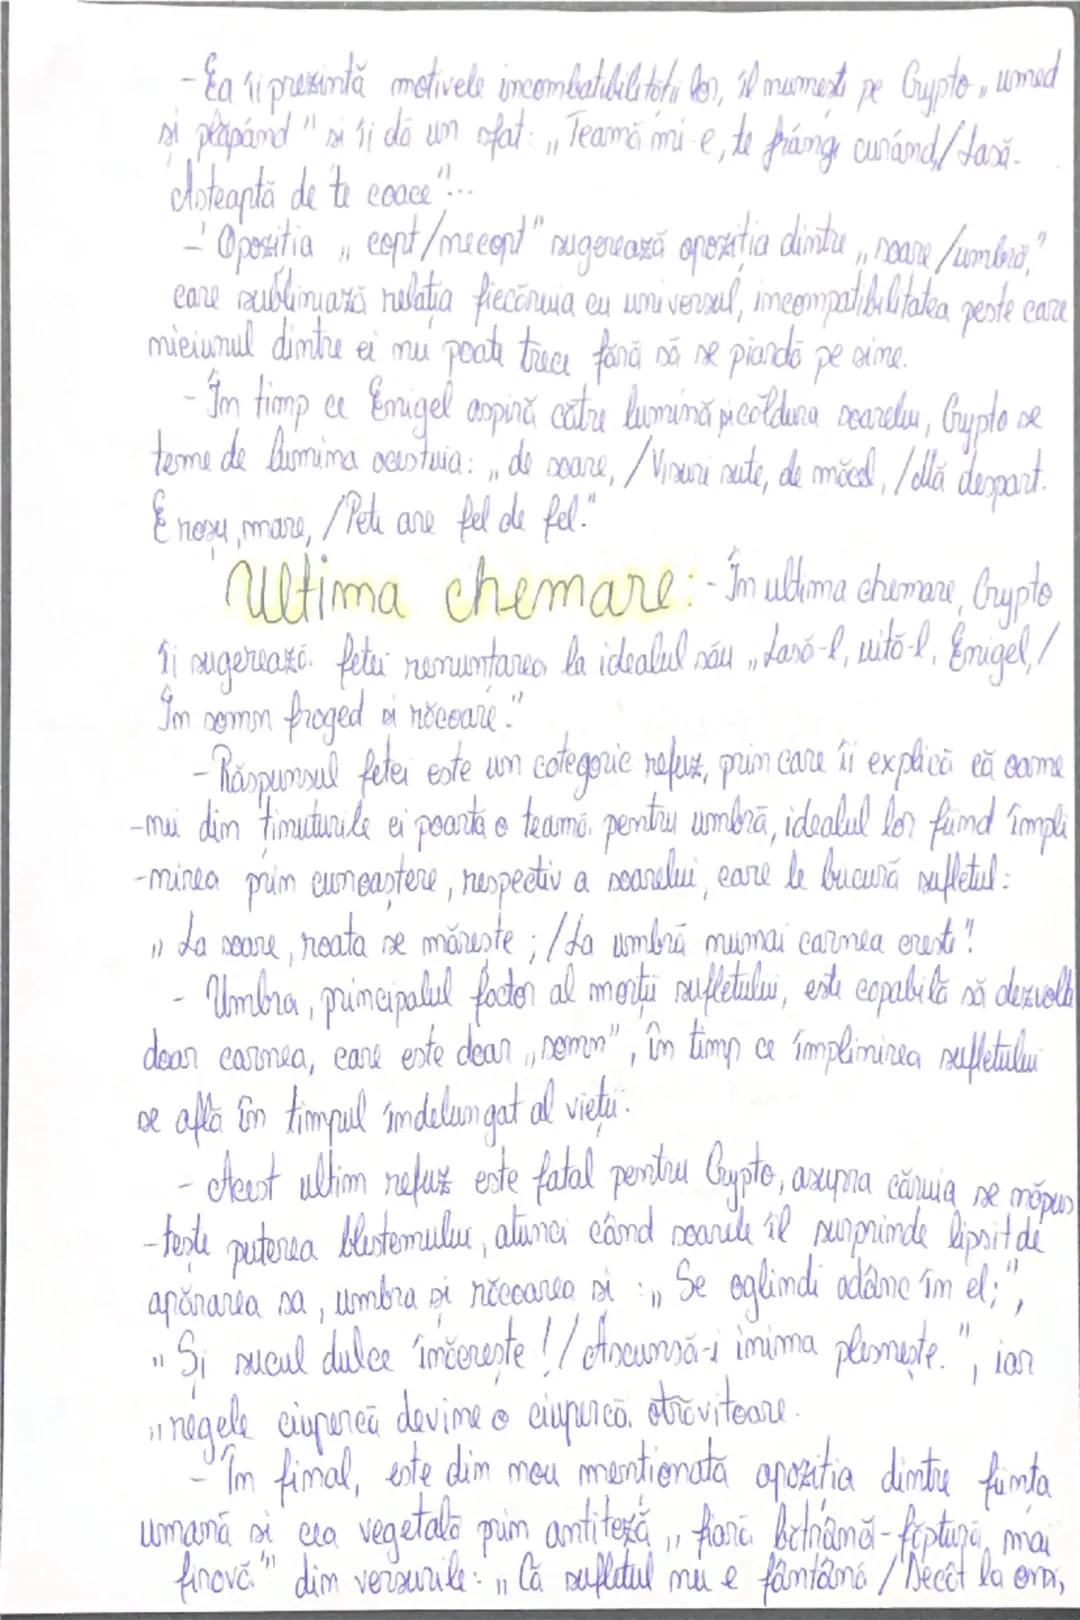 - Ea îi prezintă motivele incombatibilității lor, îl numește pe Crypto „umed
și plăpând" și îi dă un sfat: „Teamă mi-e, te frângi curând,/Lasă.
Așteaptă de te coace"...
- Opoziția „copt/necopt" sugerează opoziția dintre „soare/umbră,"
care subliniază relația fiecăruia cu universul, incompatibilitatea peste care
niciunul dintre ei nu poate trece fără să se piardă pe sine.
- În timp ce Enigel aspiră către lumină și căldura soarelui, Crypto se
teme de lumina acestuia: „de soare, /Visuri sute, de măcel, /Mă despart.
E roșu, mare, /Pete are fel de fel."
Ultima chemare: - În ultima chemare, Crypto
îi sugerează fetei renunțarea la idealul său „Lasă-l, uită-l, Enigel,/
În somn fraged și răcoare."
- Răspunsul fetei este un categoric refuz, prin care îi explică că oame
-nii din ținuturile ei poartă o teamă pentru umbră, idealul lor fiind împli
-nirea prin cunoaștere, respectiv a soarelui, care le bucură sufletul:
„La soare, roata se mărește; /La umbră numai carnea crește"!
- Umbra, principalul factor al morții sufletului, este capabilă să dezvolte
doar carnea, care este doar „somn", în timp ce împlinirea sufletului
se află în timpul îndelungat al vieții.
- Acest ultim refuz este fatal pentru Crypto, asupra căruia se năpus
-tește puterea blestemului, atunci când soarele îl surprinde lipsit de
apărarea sa, umbra și răcoarea și: „Se oglindi adânc în el;",
„Și sucul dulce înăcrește!/Ascunsă-i inima plesnește.", iar
„regele ciupercă devine o ciupercă otrăvitoare.
- În final, este din nou menționată opoziția dintre ființa
umană și cea vegetală prin antiteză „fiară bătrână-făptură mai
firavă" din versurile: „Că sufletul nu e fântână /Decât la om,